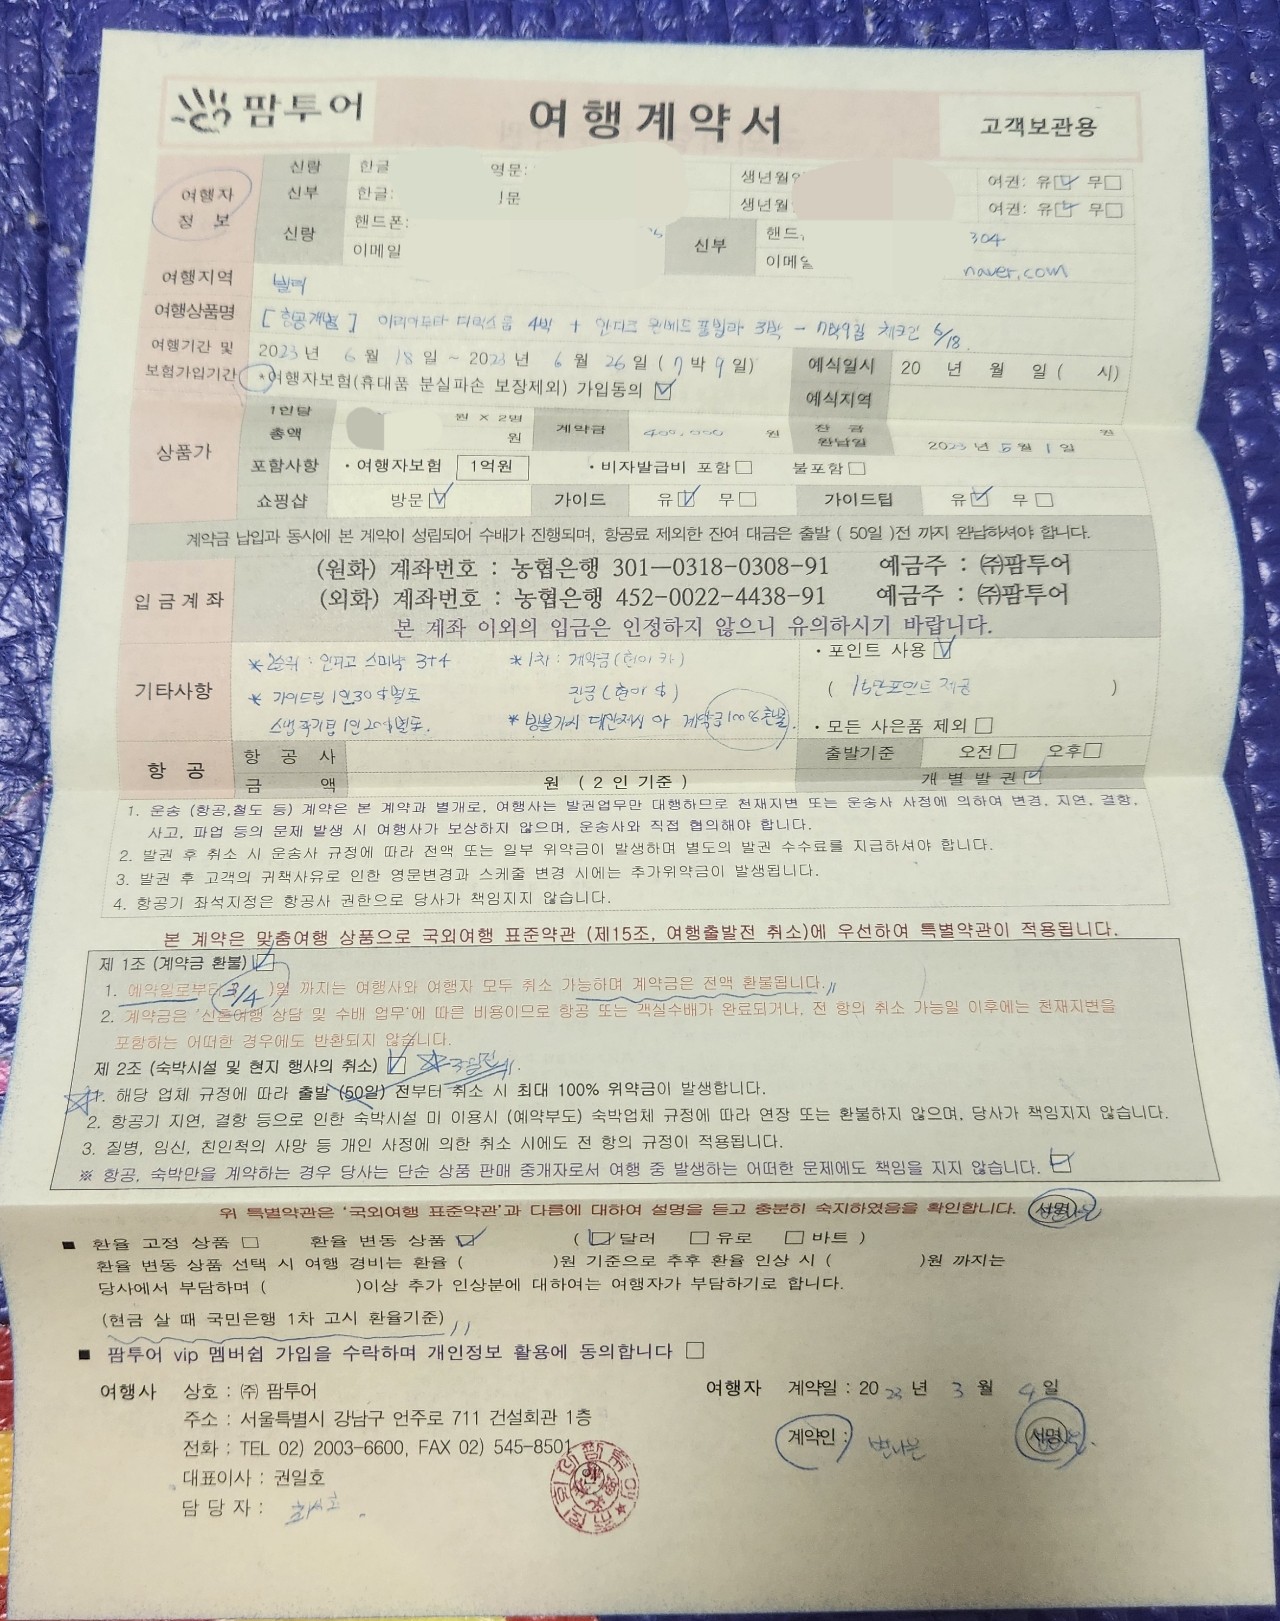 팜투어 여행계약서 고객보관용
여행자 정보
신랑 한글 영문: 생년월일 여권: 유☑ 무□
신부 한글: 문 생년월 여권: 유☑ 무□
신랑 핸드폰: 신부 핸드 304
이메일 이메일 naver.com
여행지역 발리
여행상품명 [항공개별] 디럭스룸 4박 + 풀빌라 3박 - 7박9일 체크인 6/18.
여행기간 및 보험가입기간 2023년 6월 18일 ~ 2023년 6월 26일 (7박 9일) 예식일시 20 년 월 일 ( 시)
*여행자보험(휴대품 분실파손 보장제외) 가입동의 ☑ 예식지역
상품가 1인당 총액 원 X 2명 원 계약금 400,000 원 잔금 완납일 원 2023년 5월 1일
포함사항 ・여행자보험 1억원 ・비자발급비 포함□ 불포함□
쇼핑샵 방문☑ 가이드 유☑ 무□ 가이드팁 유☑ 무□
계약금 납입과 동시에 본 계약이 성립되어 수배가 진행되며, 항공료 제외한 잔여 대금은 출발 ( 50일 )전 까지 완납하셔야 합니다.
입금계좌
(원화) 계좌번호 : 농협은행 301-0318-0308-91 예금주 : ㈜팜투어
(외화) 계좌번호 : 농협은행 452-0022-4438-91 예금주 : ㈜팜투어
본 계좌 이외의 입금은 인정하지 않으니 유의하시기 바랍니다.
기타사항
* 2순위 : 인디고 스미냑 3+4 * 1차 : 계약금(현이카) ・포인트 사용 ☑
* 가이드팁 1인30$별도 잔금(현이$) ( 15만포인트 제공 )
1인20$별도. * 계약금100%환불. ・모든 사은품 제외 □
항공 항공사 출발기준 오전□ 오후□
금액 원 (2인기준) 개별발권☑
1. 운송 (항공,철도 등) 계약은 본 계약과 별개로, 여행사는 발권업무만 대행하므로 천재지변 또는 운송사 사정에 의하여 변경, 지연, 결항,
사고, 파업 등의 문제 발생 시 여행사가 보상하지 않으며, 운송사와 직접 협의해야 합니다.
2. 발권 후 취소 시 운송사 규정에 따라 전액 또는 일부 위약금이 발생하며 별도의 발권 수수료를 지급하셔야 합니다.
3. 발권 후 고객의 귀책사유로 인한 영문변경과 스케줄 변경 시에는 추가위약금이 발생됩니다.
4. 항공기 좌석지정은 항공사 권한으로 당사가 책임지지 않습니다.
본 계약은 맞춤여행 상품으로 국외여행 표준약관 (제15조, 여행출발전 취소)에 우선하여 특별약관이 적용됩니다.
제 1조 (계약금 환불) ☑
1. 예약일로부터 3/4 )일 까지는 여행사와 여행자 모두 취소 가능하며 계약금은 전액 환불됩니다.
2. 계약금은 '신혼여행 상담 및 수배 업무'에 따른 비용이므로 항공 또는 객실수배가 완료되거나, 전 항의 취소 가능일 이후에는 천재지변을
포함하는 어떠한 경우에도 반환되지 않습니다.
제 2조 (숙박시설 및 현지 행사의 취소) ☑
1. 해당 업체 규정에 따라 출발 (50일) 전부터 취소 시 최대 100% 위약금이 발생합니다.
2. 항공기 지연, 결항 등으로 인한 숙박시설 미 이용시 (예약부도) 숙박업체 규정에 따라 연장 또는 환불하지 않으며, 당사가 책임지지 않습니다.
3. 질병, 임신, 친인척의 사망 등 개인 사정에 의한 취소 시에도 전 항의 규정이 적용됩니다.
※ 항공, 숙박만을 계약하는 경우 당사는 단순 상품 판매 중개자로서 여행 중 발생하는 어떠한 문제에도 책임을 지지 않습니다. ☑
위 특별약관은 '국외여행 표준약관'과 다름에 대하여 설명을 듣고 충분히 숙지하였음을 확인합니다. 서명
■ 환율 고정 상품 □ 환율 변동 상품 ☑ ( ☑달러 □유로 □바트 )
환율 변동 상품 선택 시 여행 경비는 환율 ( )원 기준으로 추후 환율 인상 시 ( )원 까지는
당사에서 부담하며 ( )이상 추가 인상분에 대하여는 여행자가 부담하기로 합니다.
(현금 살 때 국민은행 1차 고시 환율기준)
■ 팜투어 vip 멤버쉽 가입을 수락하며 개인정보 활용에 동의합니다 □
여행사 상호 : ㈜ 팜투어 여행자 계약일 : 2023년 3월 4일
주소 : 서울특별시 강남구 언주로 711 건설회관 1층
전화 : TEL 02) 2003-6600, FAX 02) 545-8501 계약인 : 서명
대표이사 : 권일호
담당자 :